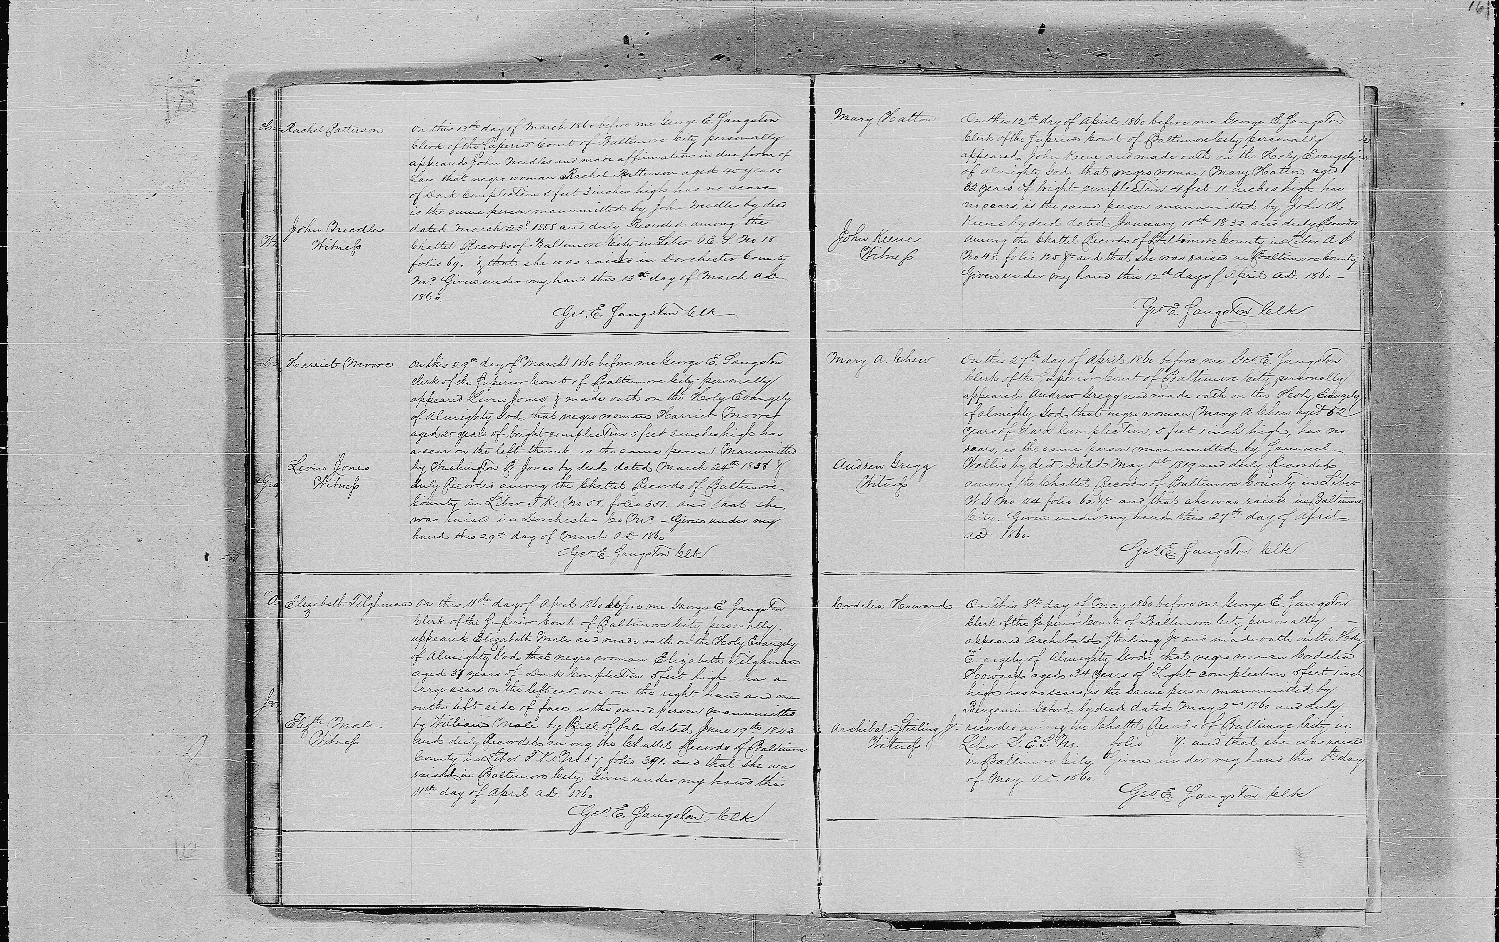 Rachel Patterson
John Needles
Witness
On this 13th day of March 1860 before me George E. Sangston
Clerk of the Superior Court of Baltimore City personally
appeared John Needles and made affirmation in due form of
Law that negro woman Rachel Patterson aged 40 years
of Dark Complexion 5 feet 3 inches high has no scars
is the same person manumitted by John Needles by deed
dated March 1855 and duly Recorded among the
Chattel Records of Baltimore City in Liber No 18
folio 67. & that she was raised in Dorchester County
Md. Given under my hand this 13th day of March ad
1860
Geo. E. Sangston Clk
Harriet Moore
Levin Jones
Witness
On this 29th day of March 1860 before me George E. Sangston
Clerk of the Superior Court of Baltimore City personally
appeared Levin Jones & made oath on the Holy Evangely
of Almighty God, that negro woman Harriet Moore
aged years of bright complexion 5 feet 3 inches high has
a scar on the left thumb is the same person Manumitted
by Washington Jones by deed dated March 24th 1838 &
duly Recorded among the Chattel Records of Baltimore
County in Liber T.K. No folio 351. and that she
was raised in Dorchester Co Md. Given under my
hand this 29th day of March A.D. 1860
Geo E Sangston Clk
Elizabeth Tilghman
Elizth Male
Witness
On this 11th day of April 1860 before me George E Sangston
Clerk of the Superior Court of Baltimore City personally
appeared Elizabeth Male and made oath on the Holy Evangely
of Almighty God, that negro woman Elizabeth Tilghman
aged 37 years of Dark Complexion 5 feet high has a
large scar on the left ear one on the right hand and one
on the left side of face is the same person manumitted
by William Male by Bill of Sale dated June 17th 1843
and duly Recorded among the Chattel Records of Baltimore
County in Liber T.K. No 67 folio 391. and that she was
raised in Baltimore City. Given under my hand this
11th day of April ad 1860
Geo. E. Sangston Clk
Mary Hatton
John Keene
Witness
On this 12th day of April 1860 before me George E. Sangston
Clerk of the Superior Court of Baltimore City personally
appeared John Keene and made oath on the Holy Evangely
of Almighty God, that negro woman Mary Hatton aged
years of bright complexion 4 feet 11 inches high has
no scars, is the same person manumitted by John H.
Keene by deed dated January 10th 1832 and duly Recorded
among the Chattel Records of Baltimore County in Liber
No folio 125 &c and that she was raised in Baltimore County
Given under my hand this 12th day of April ad. 1860
Geo E Sangston Clk
Mary A. Chew
Andrew Gregg
Witness
On this 27th day of April 1860 before me Geo E. Sangston
Clerk of the Superior Court of Baltimore City personally
appeared Andrew Gregg and made oath on the Holy Evangely
of almighty God that negro woman Mary A Chew aged 52
years of Dark Complexion 5 feet 1 inch high, has no
scars, is the same person manumitted by Samuel
Hollis by deed Dated May 1st 1819 and duly Recorded
among the Chattel Records of Baltimore County in Liber
W.G. No folio 60 &c and that she was raised in Baltimore
City. Given under my hand this 27th day of April
ad 1860
Geo E Sangston Clk
Cordelia Howard
Archibald Stirling Jr.
Witness
On this 8th day of May 1860 before me George E. Sangston
Clerk of the Superior Court of Baltimore City personally
appeared Archibald Stirling Jr and made oath on the Holy
Evangely of Almighty God that negro woman Cordelia
Howard aged 34 years of Light complexion 5 feet 1 inch
high has no scars is the same person manumitted by
Benjamin by deed dated May 2nd 1860 and duly
recorded among the Chattel Records of Baltimore City in
Liber G.E.S. No. folio &c and that she was raised
in Baltimore City Given under my hand this 8th day
of May A.D. 1860
Geo E Sangston Clk